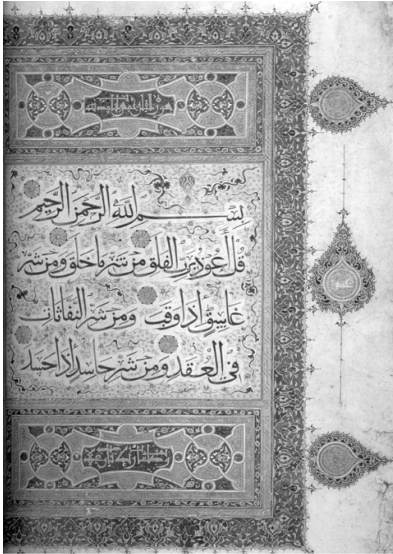 بِسْمِ اللهِ الرَّحْمَنِ الرَّحِيمِ
قُلْ أَعُوذُ بِرَبِّ الْفَلَقِ مِنْ شَرِّ مَا خَلَقَ وَمِنْ شَرِّ
غَاسِقٍ إِذَا وَقَبَ وَمِنْ شَرِّ النَّفَّاثَاتِ
فِي الْعُقَدِ وَمِنْ شَرِّ حَاسِدٍ إِذَا حَسَدَ